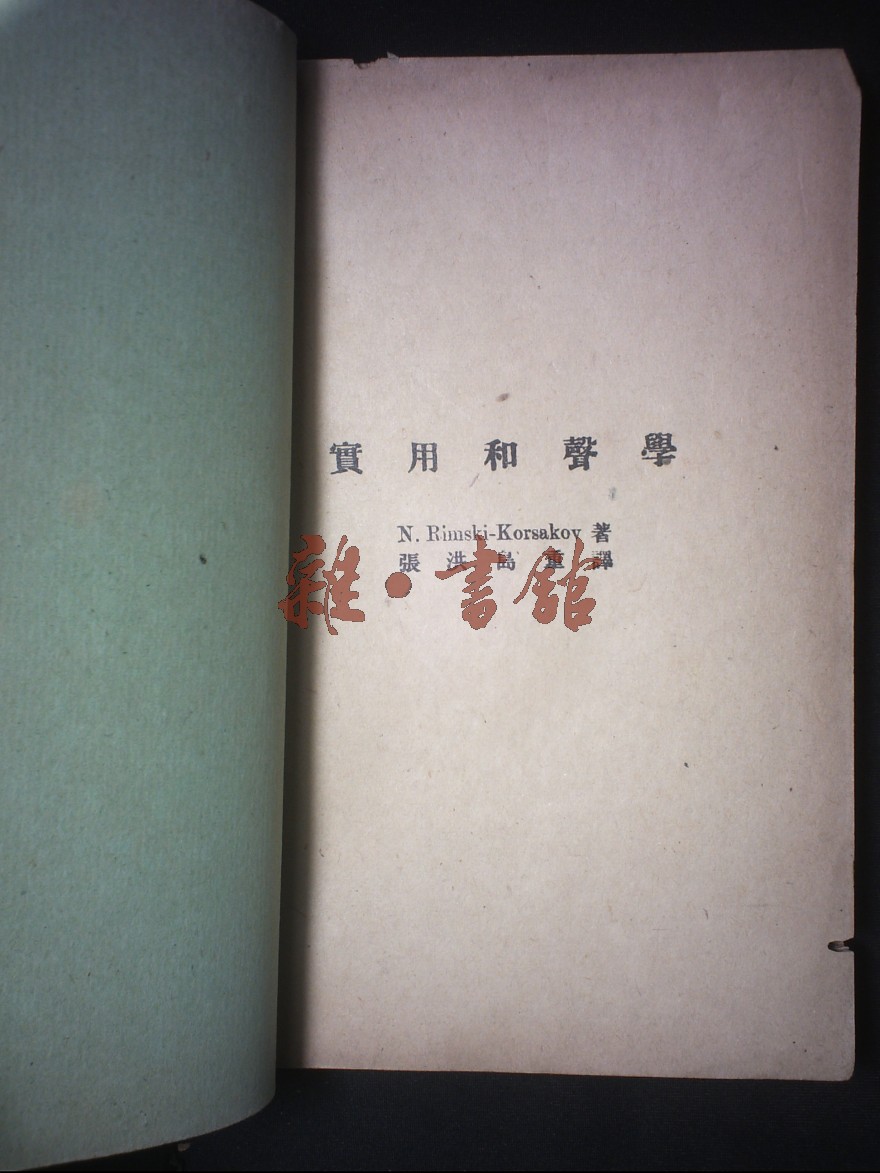 實用和聲學
N. Rimski-Korsakov 著
張洪島重譯
雜·書館